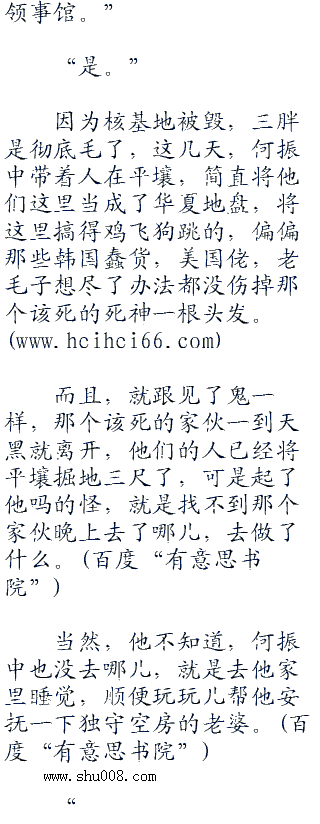 领事馆。”
“是。”
因为核基地被毁，三胖
是彻底毛了，这几天，何振
中带着人在平壤，简直将他
们这里当成了华夏地盘，将
这里搞得鸡飞狗跳的，偏偏
那些韩国蠢货，美国佬，老
毛子想尽了办法都没伤掉那
个该死的死神一根头发。
(www.hcihci66.com)
而且，就跟见了鬼一
样，那个该死的家伙一到天
黑就离开，他们的人已经将
平壤掘地三尺了，可是起了
他吗的怪，就是找不到那个
家伙晚上去了哪儿，去做了
什么。(百度“有意思书
院”)
当然，他不知道，何振
中也没去哪儿，就是去他家
里睡觉，顺便玩玩儿帮他安
抚一下独守空房的老婆。(百
度“有意思书院”)
www.shu008.com
“